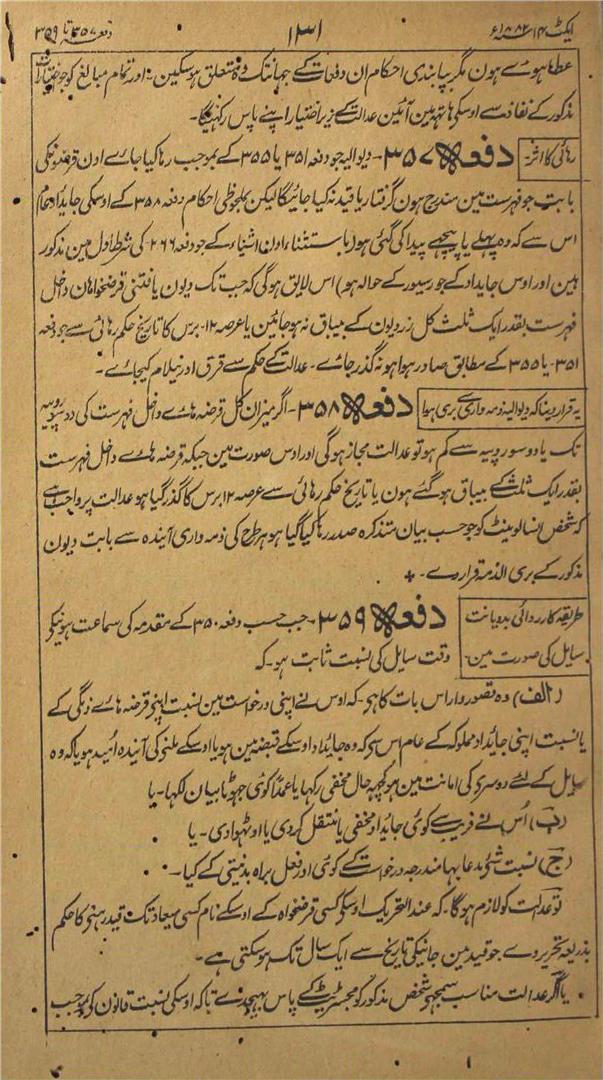 ایکٹ ۱۴ سنہ ۱۸۸۲ء
۱۳۱
دفعہ ۳۵۷ تا ۳۵۹
عطا ہوے ہون مگر بپابندی احکام ان دفعات کے جہانتک وہ متعلق ہوسکین ؛ اور تمام مبالغ کو جو اختیارات
مذکور کے نفاذ سے اوسکی ہاتھ مین آئین عدالت کے زیر اختیار اپنے پاس رکھیگا۔
رہائی کا اثر۔
دفعہ ۳۵۷۔ دیوالیہ جو دفعہ ۳۵۱ یا ۳۵۵ کے بموجب رہا کیا جاے اون قرضونکی
بابت جو فہرست مین مندرج ہون گرفتار یا قید نہ کیا جائیگا لیکن بلحوظی احکام دفعہ ۳۵۸ کے اوسکی جایداد عام
اس سے کہ وہ پہلے یا پیچھے پیدا کی گئی ہو (باستثناء اون اشیاء کے جو دفعہ ۲۶۶ کی شرط اول مین مذکور
ہین اور اوس جایداد کے جو رسیور کے حوالہ ہو) اس لایق ہوگی کہ جب تک دیون یافتنی قرضخواہان داخل
فہرست بقدر ایک ثلث کل زر دیون کے بیباق نہ ہوجائین یا عرصہ ۱۲ برس کا تاریخ حکم رہائی سے جو دفعہ
۳۵۱ یا ۳۵۵ کے مطابق صادر ہوا ہو نہ گذر جاے۔ عدالت کے حکم سے قرق اور نیلام کیجاے۔
یہ قرار دینا کہ دیوالیہ ذمہ واری سے بری ہوا
دفعہ ۳۵۸۔ اگر میزان کل قرضہ ہاے داخل فہرست کی دو سو روپیہ
تک یا دو سو روپیہ سے کم ہو تو عدالت مجاز ہوگی اور اوس صورت مین جبکہ قرضہ ہاے داخل فہرست
بقدر ایک ثلث کے بیباق ہوگئے ہون یا تاریخ حکم رہائی سے عرصہ ۱۲ برس کا گذر گیا ہو عدالت پر واجب ہے
کہ شخص انسالوینٹ کو جو حسب بیان متذکرہ صدر رہا کیا گیا ہو ہر طرح کی ذمہ داری آیندہ سے بابت دیون
مذکور کے بری الذمہ قرار دے۔
طریقہ کارروائی بددیانت
سایل کی صورت مین۔
دفعہ ۳۵۹۔ جب حسب دفعہ ۳۵۰ کے مقدمہ کی سماعت ہونیکے
وقت سایل کی نسبت ثابت ہو۔ کہ
(الف) وہ قصوروار اس بات کا ہی۔ کہ اوس نے اپنی درخواست مین نسبت اپنے قرضہ ہاے ذمگی کے
یا نسبت اپنی جائداد مملوکہ کے عام اس سی کہ وہ جائداد اوسکے قبضہ مین ہو یا اوسکے ملنے کی آیندہ اُمید ہو یا کہ وہ
سایل کے لئے دوسری کی امانت مین ہو کچھہ حال مخفی رکھا یا عمداً کوئی جھوٹا بیان لکھا۔ یا
(ب) اُس نے فریب سے کوئی جایداد مخفی یا منتقل کردی یا اوٹھوا دی۔ یا
(ج) نسبت شے مدعا بہا مندرجہ درخواست کے کوئی اور فعل براہ بدنیتی کے کیا۔
تو عدالت کو لازم ہوگا۔ کہ عند التحریک اوسکی کسی قرضخواہ کے اوسکے نام کسی میعاد تک قید رہنی کا حکم
بذریعہ تحریر دے جو قید مین جانیکی تاریخ سے ایک سال تک ہوسکتی ہے۔
یا اگر عدالت مناسب سمجھے شخص مذکور کو مجسٹریٹ کے پاس بھیجدے تاکہ اوسکی نسبت قانون کے بموجب